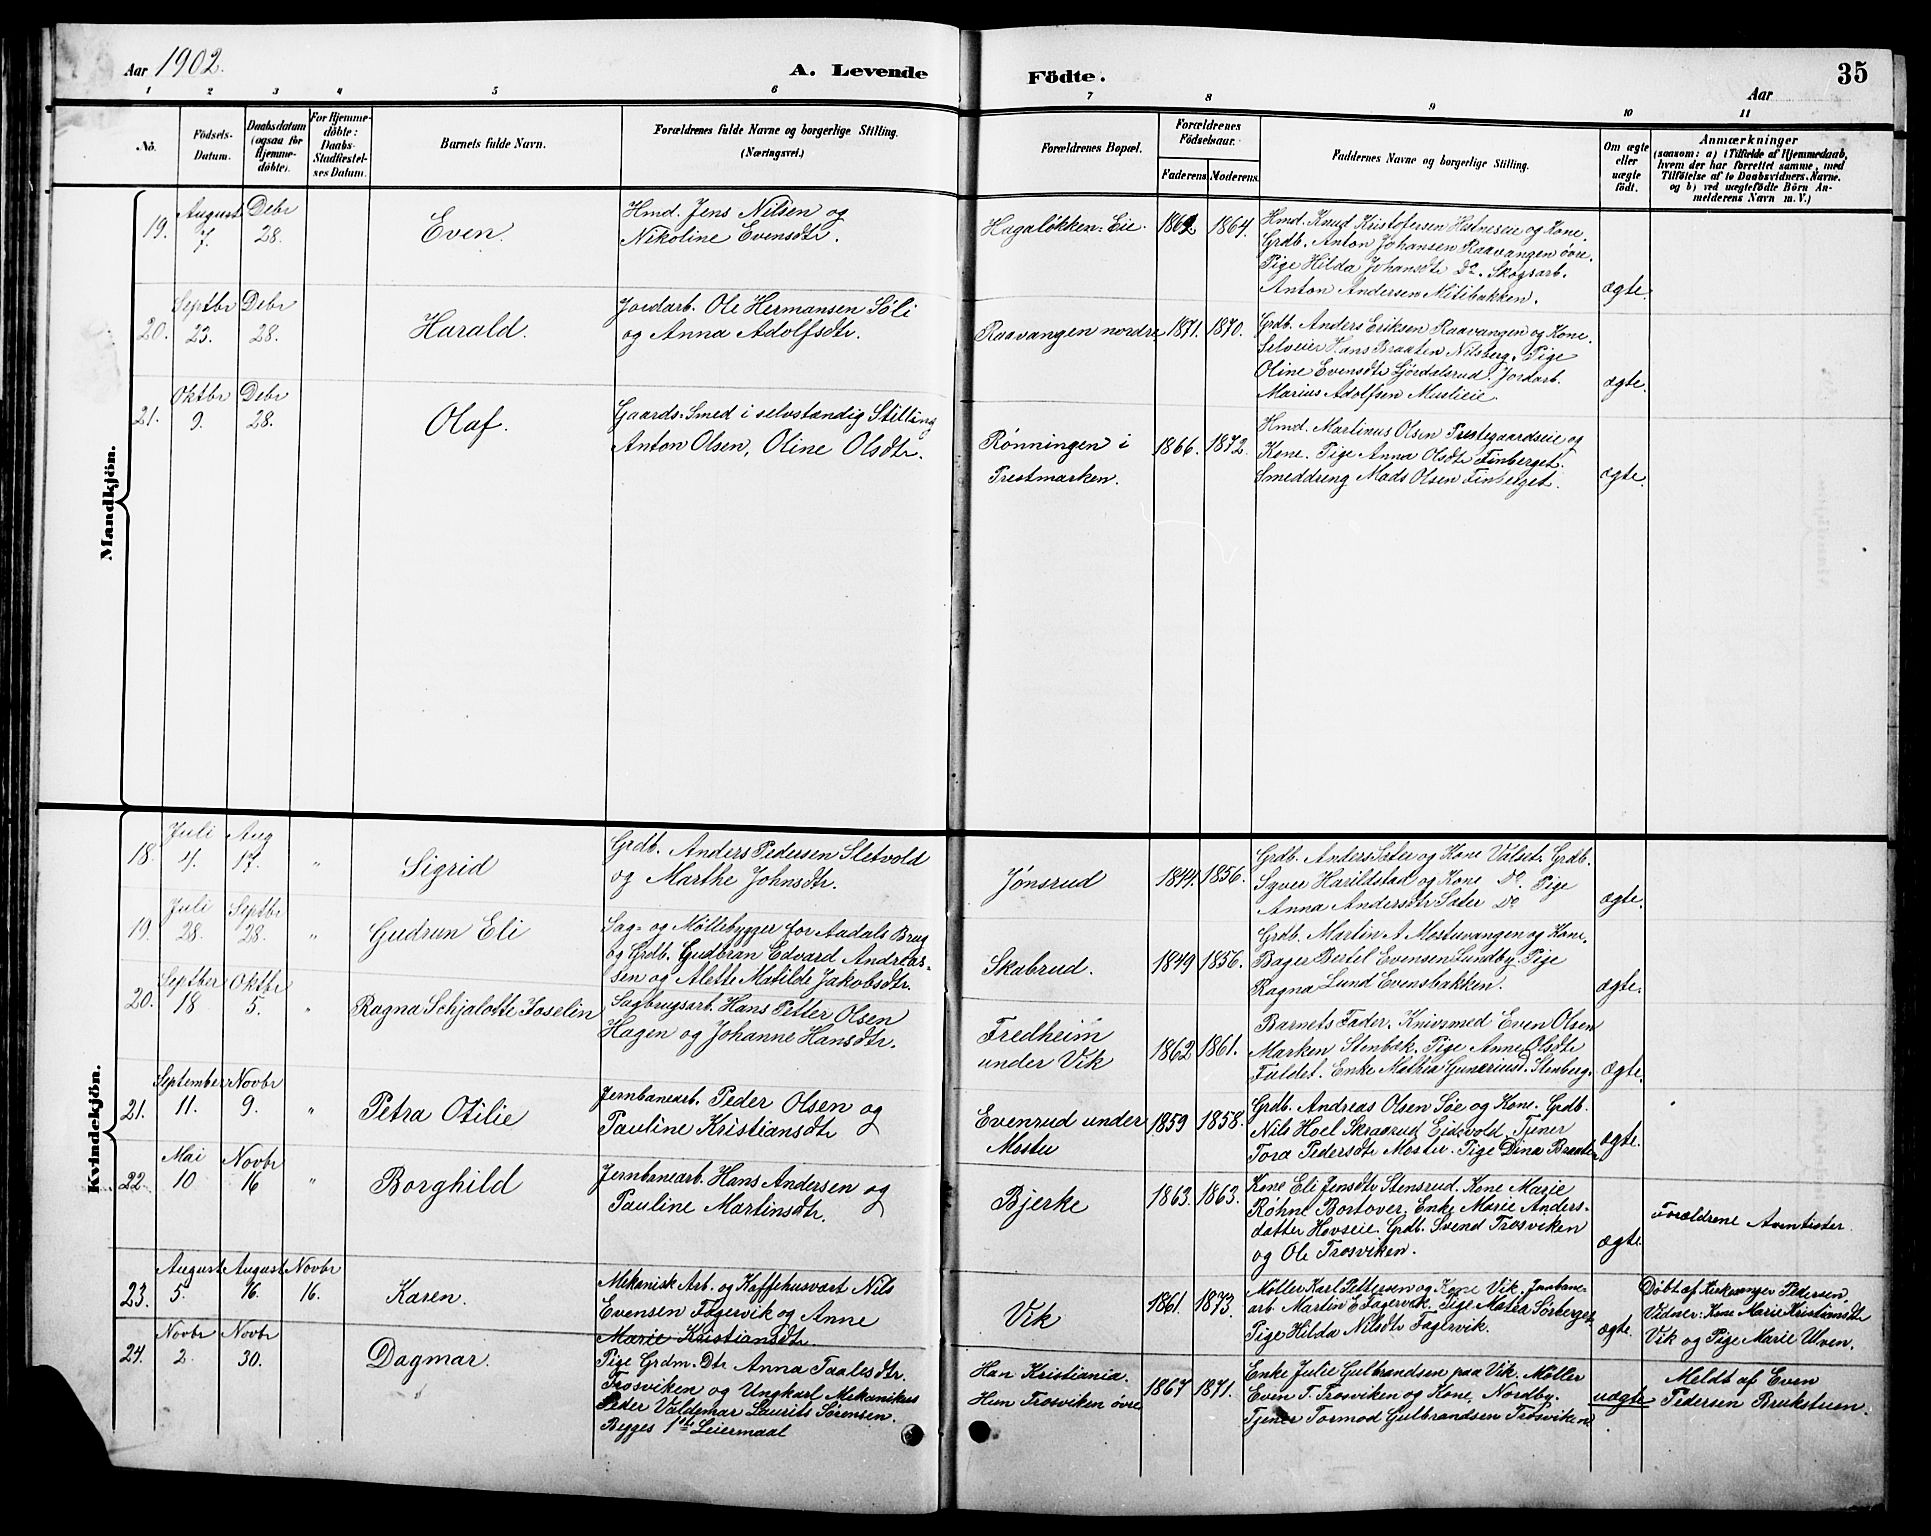 Aar 1902.
A. Levende Födte.
35
Aar
1 2 3 4 5 6 7 8 9 10 11
No.
Födsels-
Datum.
Daabsdatum
(ogsaa for
Hjemme-
döbte).
For Hjemme-
döbte:
Daabs-
Stadfæstel-
ses Datum.
Barnets fulde Navn.
Forældrenes fulde Navne og borgerlige Stilling.
(Næringsvei.)
Forældrenes Bopæl.
Forældrenes
Födselsaar.
Faderens.
Moderens.
Faddernes Navne og borgerlige Stilling.
Om ægte
eller
uægte
födt.
Anmærkninger
(saasom: a) i Tilfælde af Hjemmedaab,
hvem der har forrettet samme, med
Tilföielse af to Daabsvidners Navne.
og b) ved uægtefödte Börn An-
melderens Navn m. V.)
Mandkjön.
19.
August
7.
Debr
28.
Even.
Hmd. Jens Nilsen og
Nikoline Evensdtr.
Hagaløkken. Eie.
1862
1864.
Hmd. Knud Kristofersen Hstneseie og Kone.
Grdb. Anton Johansen Raavangen övre.
Pige Hilda Johansdtr Do. Skogsarb.
Anton Andersen Mitibakken.
ægte.
20.
Septbr
23.
Debr
28.
Harald.
Jordarb. Ole Hermansen Söli
og Anna Adolfsdtr.
Raavangen nordre
1871.
1870.
Grdb. Anders Eriksen Raavangen og Kone.
Selveier Hans Braaten Nilsberg. Pige
Oline Evensdtr Gjördalsrud. Jordarb.
Marius Adolfsen Muslieie.
ægte.
21.
Oktbr
9.
Debr
28.
Olaf.
Gaards-Smed i selvstændig Stilling
Anton Olsen, Oline Olsdtr.
Rønningen i
Prestmarken.
1866.
1872.
Hmd. Martinus Olsen Prestegaardseie og
Kone. Pige Anna Olsdtr Finberget.
Smeddreng Mads Olsen Finberget.
ægte.
Kvindekjön.
18.
Juli
4.
Aug
17.
"
Sigrid
Grdb. Anders Pedersen Sletvold
og Marthe Johnsdtr.
Jønsrud
1844.
1856.
Grdb. Anders Sater og Kone Valset. Grdb.
Syver Harildstad og Kone Do. Pige
Anna Andersdtr Sater Do
ægte.
19.
Juli
28.
Septbr
28.
"
Gudrun Eli
Sag- og Møllebygger for Aadals Brug
og Grdb. Gudbran Edvard Andreas-
sen og Alette Matilde Jakobsdtr.
Skabrud.
1849
1856.
Grdb. Martin A Mostuvangen og Kone.
Bager Bertel Evensen Lundby. Pige
Ragna Lund Evensbakken.
ægte.
20.
Septber
18
Oktbr
5.
"
Ragna Schjalotte Joselin
Sagbrugsarb. Hans Petter Olsen
Hagen og Johanne Hansdtr.
Fredheim
under Vik
1862
1861.
Barnets Fader. Knivsmed Even Olsen
Marken Stenbæk. Pige Anne Olsdtr
Fuldet. Enke Mathea Gunerius. Stenberg.
ægte.
21.
September
11.
Novbr
9.
"
Petra Otilie
Jernbanearb. Peder Olsen og
Pauline Kristiansdtr
Evenrud under
Mostu
1859
1858.
Grdb. Andreas Olsen Søe og Kone. Grdb.
Nils Hoel Skraarud Eidsvold. Tjener
Tora Pedersdtr Mostu. Pige Dina Braaten
ægte.
22.
Mai
10
Novbr
16
"
Borghild
Jernbanearb. Hans Andersen og
Pauline Martinsdtr.
Bjerke
1863.
1863.
Kone Eli Jensdtr Stensrud. Kone Marie
Røhne Bortover. Enke Marie Anders-
datter Hovseie. Grdb. Svend Trosviken
og Ole Trosviken.
ægte.
Forældrene Aventister.
23.
August
5.
August
16.
Novbr
16.
Karen.
Mekanisk Arb. og Kaffehusvært Nils
Evensen Fagervik og Anne
Marie Kristiansdtr.
Vik
1861.
1873.
Møller Karl Pettersen og Kone Vik. Jernbane-
arb. Martin E. Fagervik. Pige Matea Sørberget
Pige Hilda Nilsdtr Fagervik.
ægte.
Døbt af Kirkesanger Pedersen.
Vidner: Kone Marie Kristiansdtr
Vik og Pige Marie Ulven.
24.
Novbr
2.
Novbr
30.
Dagmar.
Pige Grdm. Dtr Anna Taalesdtr.
Trosviken og Ungkarl Mekanikus
Peder Valdemar Laurits Sørensen.
Begges 1ste Leiermaal
Han Kristiania.
Hun Trosviken övre
1867
1871.
Enke Julie Gulbrandsen paa Vik. Møller
Even T. Trosviken og Kone, Nordby.
Tjener Tormod Gulbrandsen Trosviken
uægte
Meldt af Even
Pedersen Brukstuen.